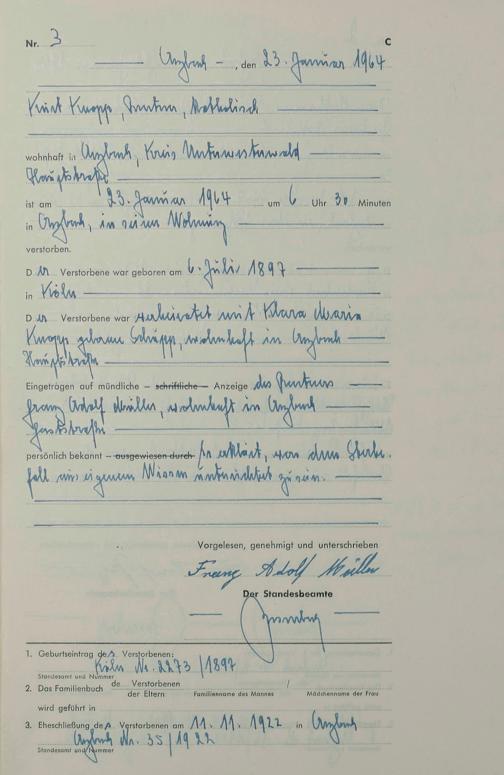 Nr. 3 C
Arzbach, den 23. Januar 1964
Kurt Knopp, Rentner, katholisch
wohnhaft in Arzbach, Kreis Unterwesterwald
Hauptstraße
ist am 23. Januar 1964 um 6 Uhr 30 Minuten
in Arzbach, in seiner Wohnung
verstorben.
Der Verstorbene war geboren am 6. Juli 1897
in Köln
Der Verstorbene war verheiratet mit Klara Maria
Knopp geborene Schupp, wohnhaft in Arzbach
Hauptstraße
Eingetragen auf mündliche – schriftliche – Anzeige des Rentners
Franz Adolf Müller, wohnhaft in Arzbach
persönlich bekannt – ausgewiesen durch Er erklärt, von dem Sterbe-
fall aus eigenem Wissen unterrichtet zu sein.
Vorgelesen, genehmigt und unterschrieben
Franz Adolf Müller
Der Standesbeamte
1. Geburtseintrag des Verstorbenen:
Köln Nr. 2273/1897
Standesamt und Nummer
2. Das Familienbuch de Verstorbenen /
der Eltern Familienname des Mannes Mädchenname der Frau
wird geführt in
3. Eheschließung des Verstorbenen am 11.11.1922 in Arzbach
Arzbach Nr. 35/1922
Standesamt und Nummer